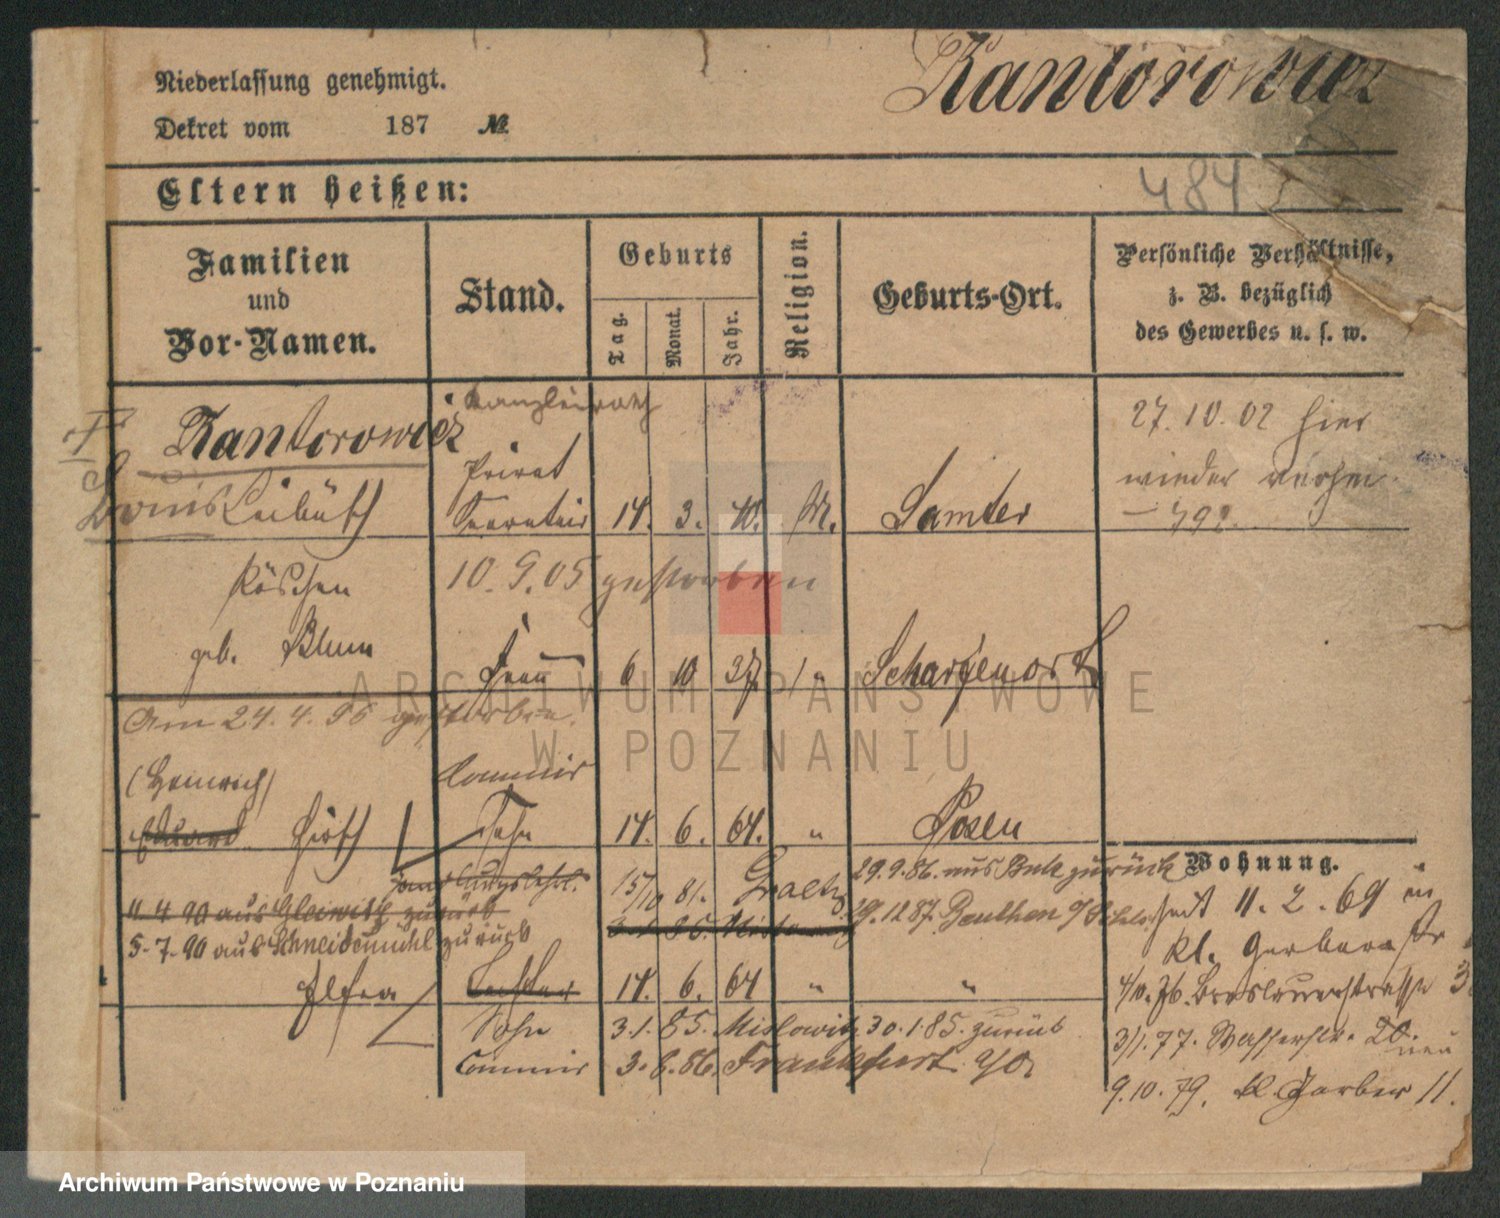 Niederlassung genehmigt.
Kantorowicz
Dekret vom 187 №
Eltern heißen:
484
Familien
und
Vor-Namen.
Stand.
Geburts
Tag.
Monat.
Jahr.
Religion.
Geburts-Ort.
Persönliche Verhältnisse,
z. B. bezüglich
des Gewerbes u. s. w.
Kanzleirath
27.10.02 hier
Kantorowicz
Privat
wieder
Louis Leibusch Secretair 14. 3. 40. M. Samter
Röschen 10.9.05 gestorben
geb. Blum Frau 6 10 37 " Scharfenort
Am 24.4.96 gestorben.
(Heinrich) Commis
Eduard Hirsch Sohn 14. 6. 64. " Posen
Wohnung.
15/10 81. Graetz 29.9.86. aus Buk zurück
seit 11.2.69 in
4.4.90 aus Gleiwitz zurück
3.1.85. Mislowitz 29.12.87. Beuthen O/Schl.
5.7.90 aus Schneidemühl zurück
kl. Gerberstr
14. 6. 64 " "
4/10.76. Breslauerstrasse 3
Sohn 3.1.85. Mislowitz 30.1.85. zurück
3/1.77. Wasserstr. 20. neu
Commis 3.8.86. Frankfurt a/O.
9.10.79. kl. Gerber 11.
ARCHIWUM PAŃSTWOWE
W POZNANIU
Archiwum Państwowe w Poznaniu